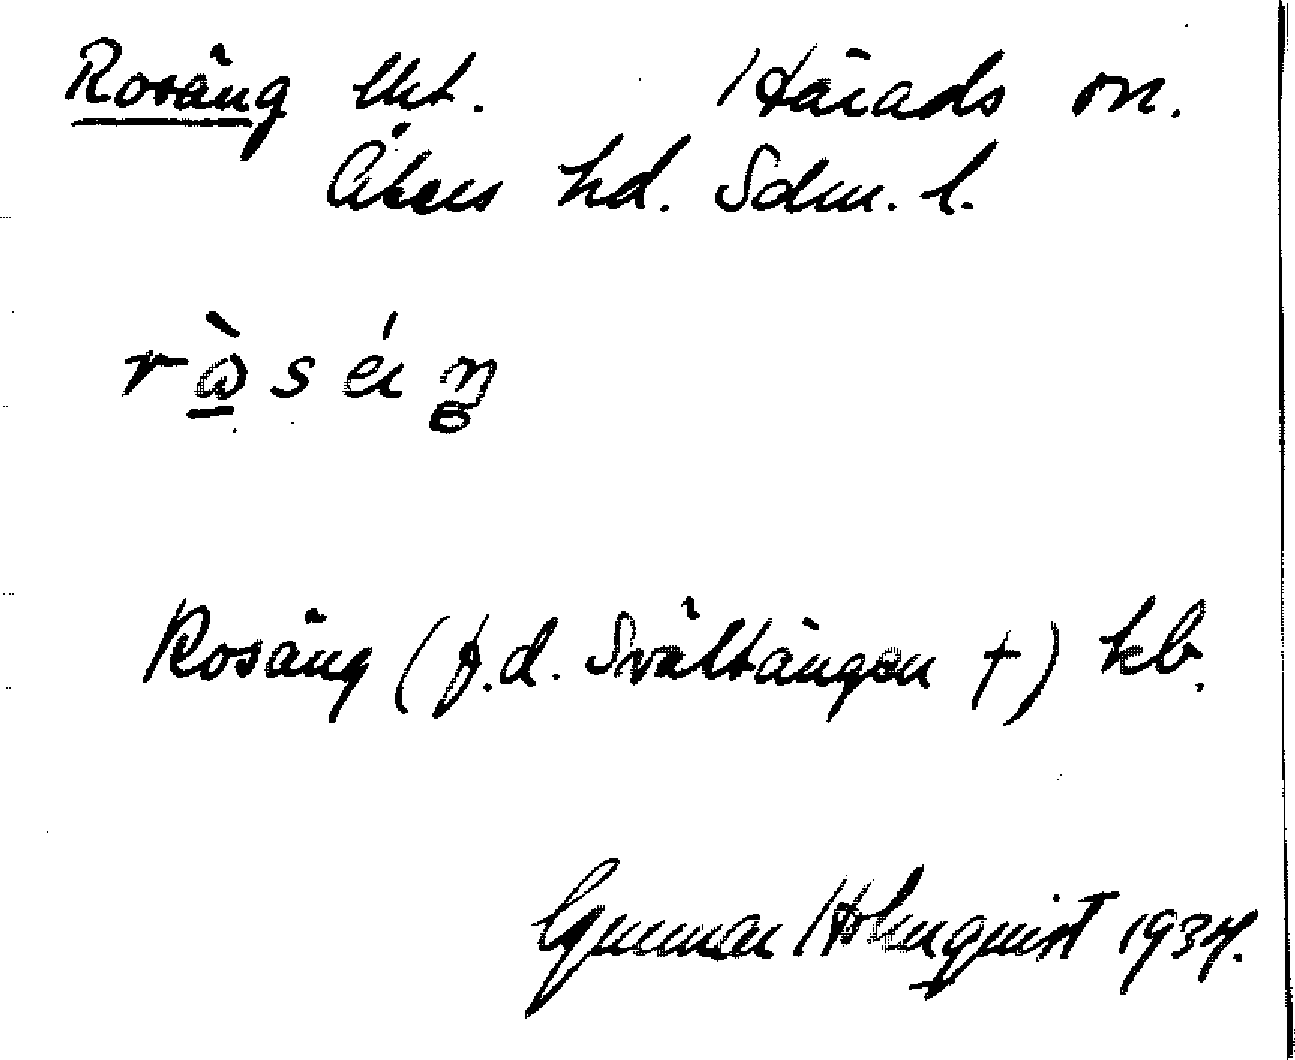 Rosäng lht. Härads sn.
Åkers hd. Sdm. l.
Rosäng (f.d. Svältängen †) kb.
Gunnar Holmquist 1934.